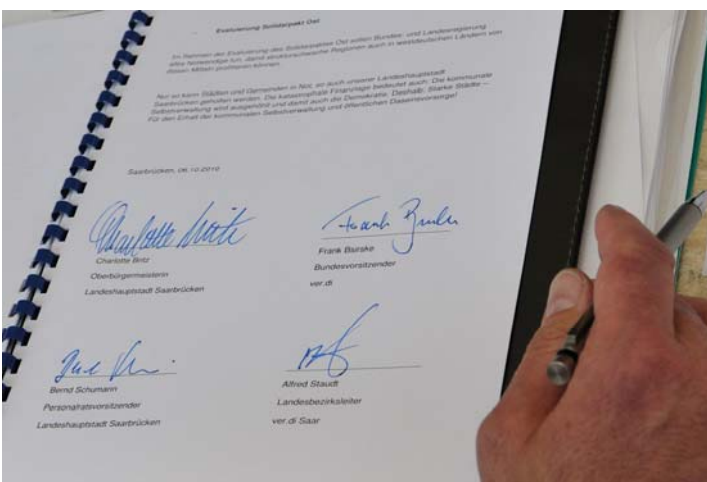 Evaluierung Solidarpakt Ost
Im Rahmen der Evaluierung des Solidarpaktes Ost sollen Bundes- und Landesregierung
alles Notwendige tun, damit strukturschwache Regionen auch in westdeutschen Ländern von
diesen Mitteln profitieren können.
Nur so kann Städten und Gemeinden in Not, so auch unserer Landeshauptstadt
Saarbrücken geholfen werden. Die katastrophale Finanzlage bedeutet auch: Die kommunale
Selbstverwaltung wird ausgehöhlt und damit auch die Demokratie. Deshalb: Starke Städte –
Für den Erhalt der kommunalen Selbstverwaltung und öffentlichen Daseinsvorsorge!
Saarbrücken, 06.10.2010
Charlotte Britz
Frank Bsirske
Charlotte Britz
Frank Bsirske
Oberbürgermeisterin
Bundesvorsitzender
Landeshauptstadt Saarbrücken
ver.di
Bernd Schumann
Alfred Staudt
Personalratsvorsitzender
Landesbezirksleiter
Landeshauptstadt Saarbrücken
ver.di Saar